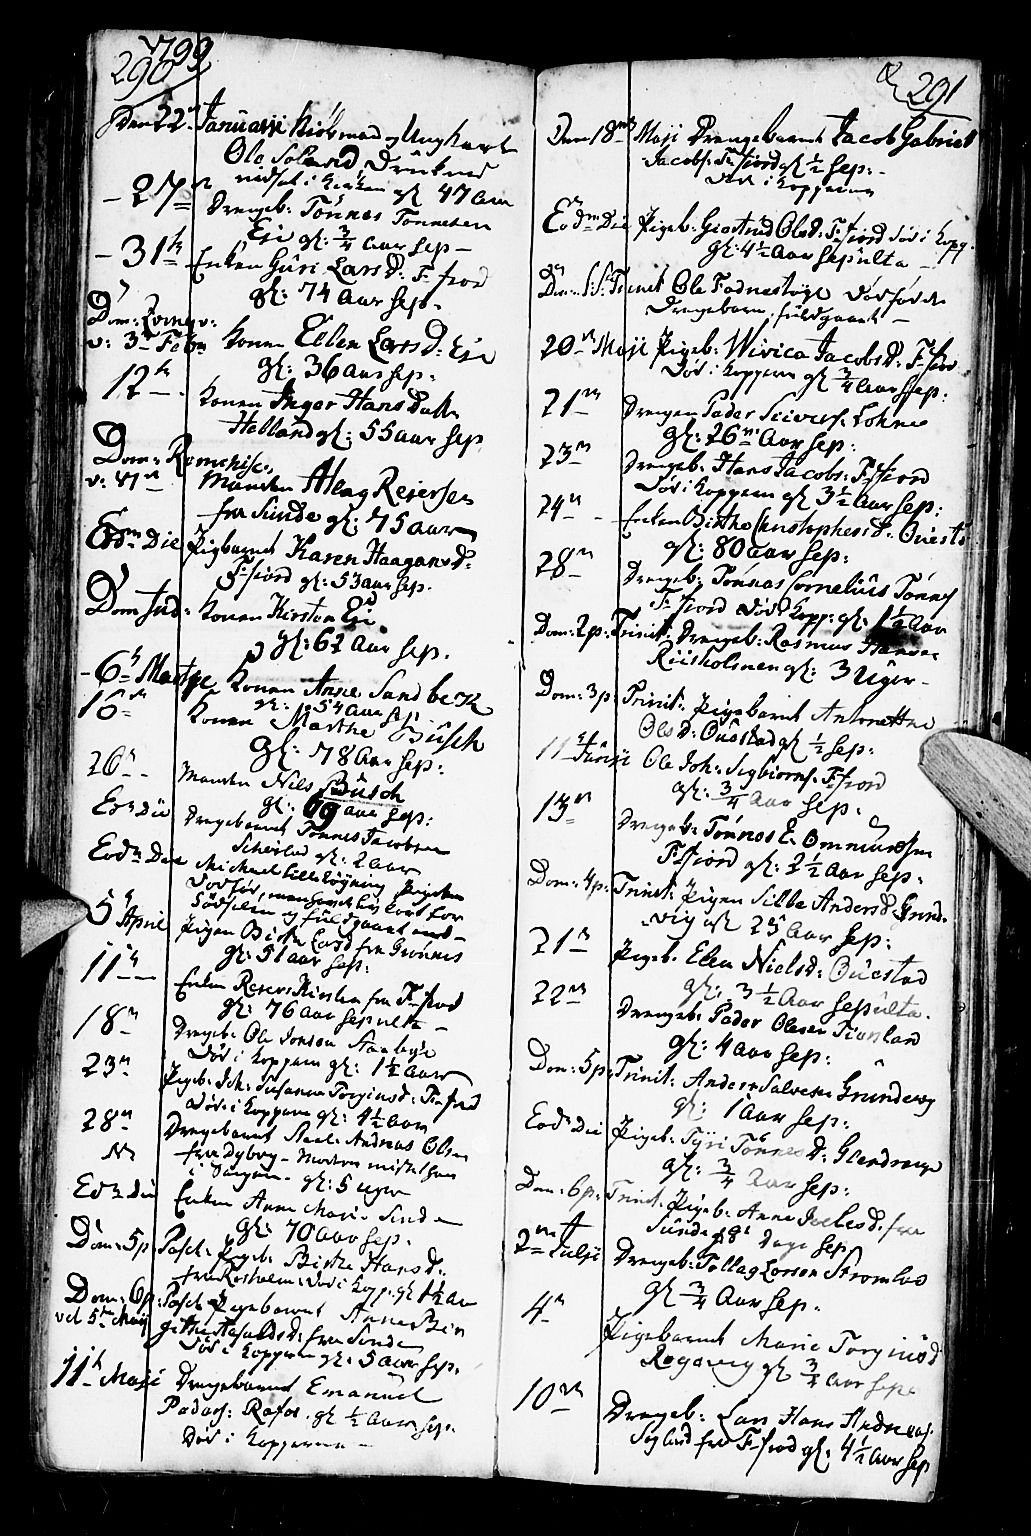 1799
290
Den 22 Januarii Kiøbmand og Ungkarl
Ole
nedsat i Kirken gl 47 Aar
- 27 Drengeb: Tønnes Tønnesen
Eje gl: 3/4 Aar sep -
- 31 Enken Guri LarsD: F:fiord
gl: 74 Aar sep.
Dom:
v: 3 Febr Konen Ellen LarsD: Eje
gl: 36 Aar sep:
12 Konen Inger HansDatter
Helland gl: 55 aar sep
Dom:
Manden Reiersen
fra Sunde gl: 75 aar
Eod Die Pigbarnet Karen HaagansD:
F:fiord gl: 53 aar sep.
Dom Konen Kirsten Eje
gl: 62 Aar sep.
- 6 Martje Konen Anne Sandbeck
gl: 54 Aar
16 Konen Marthe Busch
gl: 78 Aar sep:
20 Manden Niels Busch
gl: 69 aar sep:
Eod Die Drengebarnet Tønnes Jacobsen
gl: 2 Aar
Eod Die Michael
og fuldgaaet
5 April Pigen Birte fra Grønnes
gl: 51 aar sep:
11 Enken Kirsten fra F:fiord
gl: 76 Aar sepulta -
18 Drengeb: Ole Jonsen
Død i Kopperne gl: 1 1/2 Aar
23 Pigeb: Joh: Susanna TorgiusD: F:fiord
Død i Kopperne gl: 4 1/2 Aar
28 Drengebarnet Andreas Olsen
fra Dybvig - Moderen
gl: 5 uger
Eod Die Enken Anne Marie Sunde
gl: 70 aar sep.
Dom: 5 p Pasch: Pigeb: Birte HansD:
fra død i Kopp: gl 1 1/2 Aar
Dom: 6 p: Pasch Pigebarnet Anne Bir
vel 5 Maji githe fra Sunde
Død i Kopperne gl: 5 aar sep.
11 Maji Drengebarnet Emanuel
Peders: Rafos gl 1/2 Aar sep.
Død i Kopperne -
291
Den 18 Maji Drengebarnet Jacob Gabriel
Jacobs: F:fiord gl 1/2 sep: -
Død i Kopperne
Eodm Die Pigeb: Giertrud OlsD: F:fiord død i Kopp.
gl: 4 1/2 Aar sepulta -
Dom: Ole Fodnestøl dødfødte
Drengebarn, fuldgaaet -
20 Maji Pigeb: Wivica JacobsD: F:fior
Død i Kopperne gl 3/4 Aar sep:
21 Drengen Peder Sivers: Lohne
gl: 26 Aar sep:
23 Drengeb: Hans Jacobs: F:fiord
Død i Kopperne gl 3 1/2 Aar sep:
24 Enken Birthe ChristophersD: Ouestad
gl: 80 Aar sep:
28 Drengeb: Tønnas Cornelius Tønnes
F:fiord Død Kopp: gl: 1 1/2 Aar
Dom: 2 p: Trinit: Drengeb: Rasmus Hansen
Riisholmen gl: 3 Uger -
Dom: 3 p: Trinit: Pigebarnet Antonette
OlsD: Ouestad gl 1/2 sep:
11 Junji Ole Joh: Sigbiorns: F:fiord
gl: 3/4 Aar sep.
13 Drengeb: Tønnes E. Ommundsen
F:fiord gl: 2 1/2 Aar sep.
Dom: 4 p: Trinit: Pigen Sille AndersD Grund-
vig gl 25 Aar sep:
21 Pigeb. Elen NielsD: Ouestad
gl: 3 1/2 Aar sepulta.
22 Drengeb: Peder Olsen
gl: 4 aar sep:
Dom: 5 p: Trinit: Anders Salvesen Grundevig
gl: 1 Aar sep:
Eod Die Pigeb: Tyri TønnesD: Glendrange
gl: 3/4 Aar sep:
Dom: 6 p: Trinit: Pigeb: Anne fra
Sunde 8 Dage sep
2 Julji Drengeb: Tollag Larsen Stromland
gl 3/4 Aar sep.
4 Pigebarnet Marie TorgiusD
Rogevig gl 3/4 Aar sep
10 Drengeb: Lars Hans Andreas:
Sigland fra F:fiord gl: 4 1/2 Aar sep